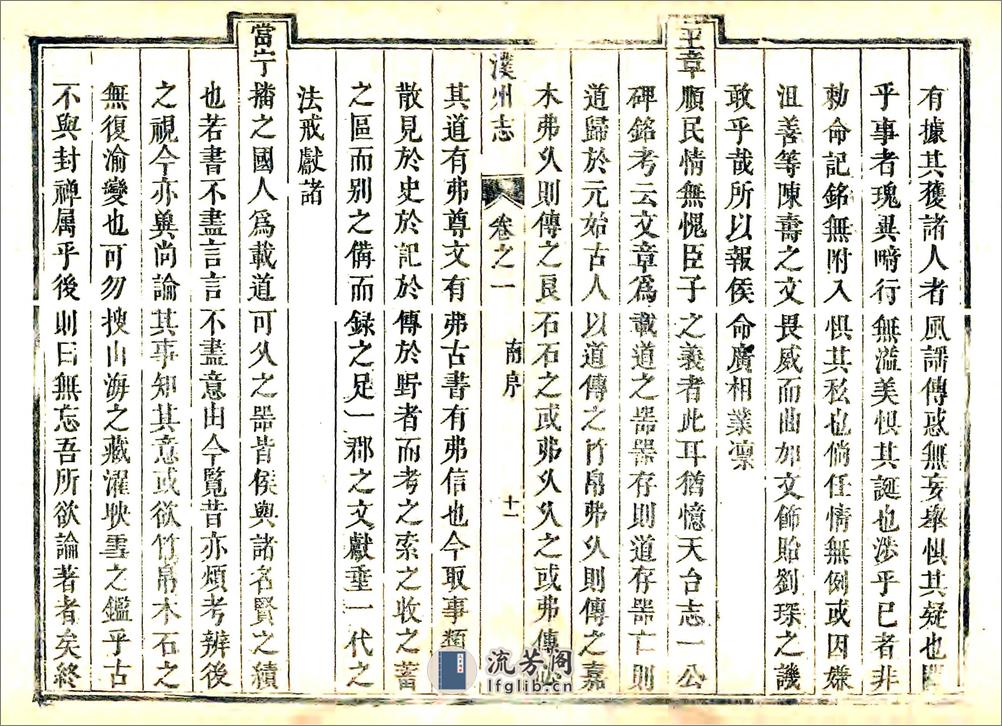 有據其獲諸人者風謡傳惑無妄舉懼其疑也
乎事者瑰異畸行無溢美懼其誕也涉乎已者非
勅命記銘無附入懼其私也倘任情無例或因嫌
沮善等陳壽之文畏威而曲加文飾貽劉琛之譏
敢乎哉所以報侯命廣相業凜
王章順民情無愧臣子之義者此耳猶憶天台志一公
碑銘考云文章爲載道之器器存則道存器亡則
道歸於元始古人以道傳之竹帛弗久則傳之嘉
木弗久則傳之良石石之或弗久久之或弗傳
濮州志 卷之一 南序 十一
其道有弗尊文有弗古書有弗信也今取事類
散見於史於記於傳於野者而考之索之收之蓄
之區而别之備而録之足一郡之文獻垂一代之
法戒獻諸
當宁播之國人爲載道可久之器皆侯與諸名賢之績
也若書不盡言言不盡意由今覽昔亦煩考辨後
之視今亦異尚論其事知其意或欲竹帛木石之
無復渝變也可勿搜山海之藏濯映雪之鑑乎古
不與封禅属乎後則曰無忘吾所欲論著者矣終
流芳阁
lfglib.cn